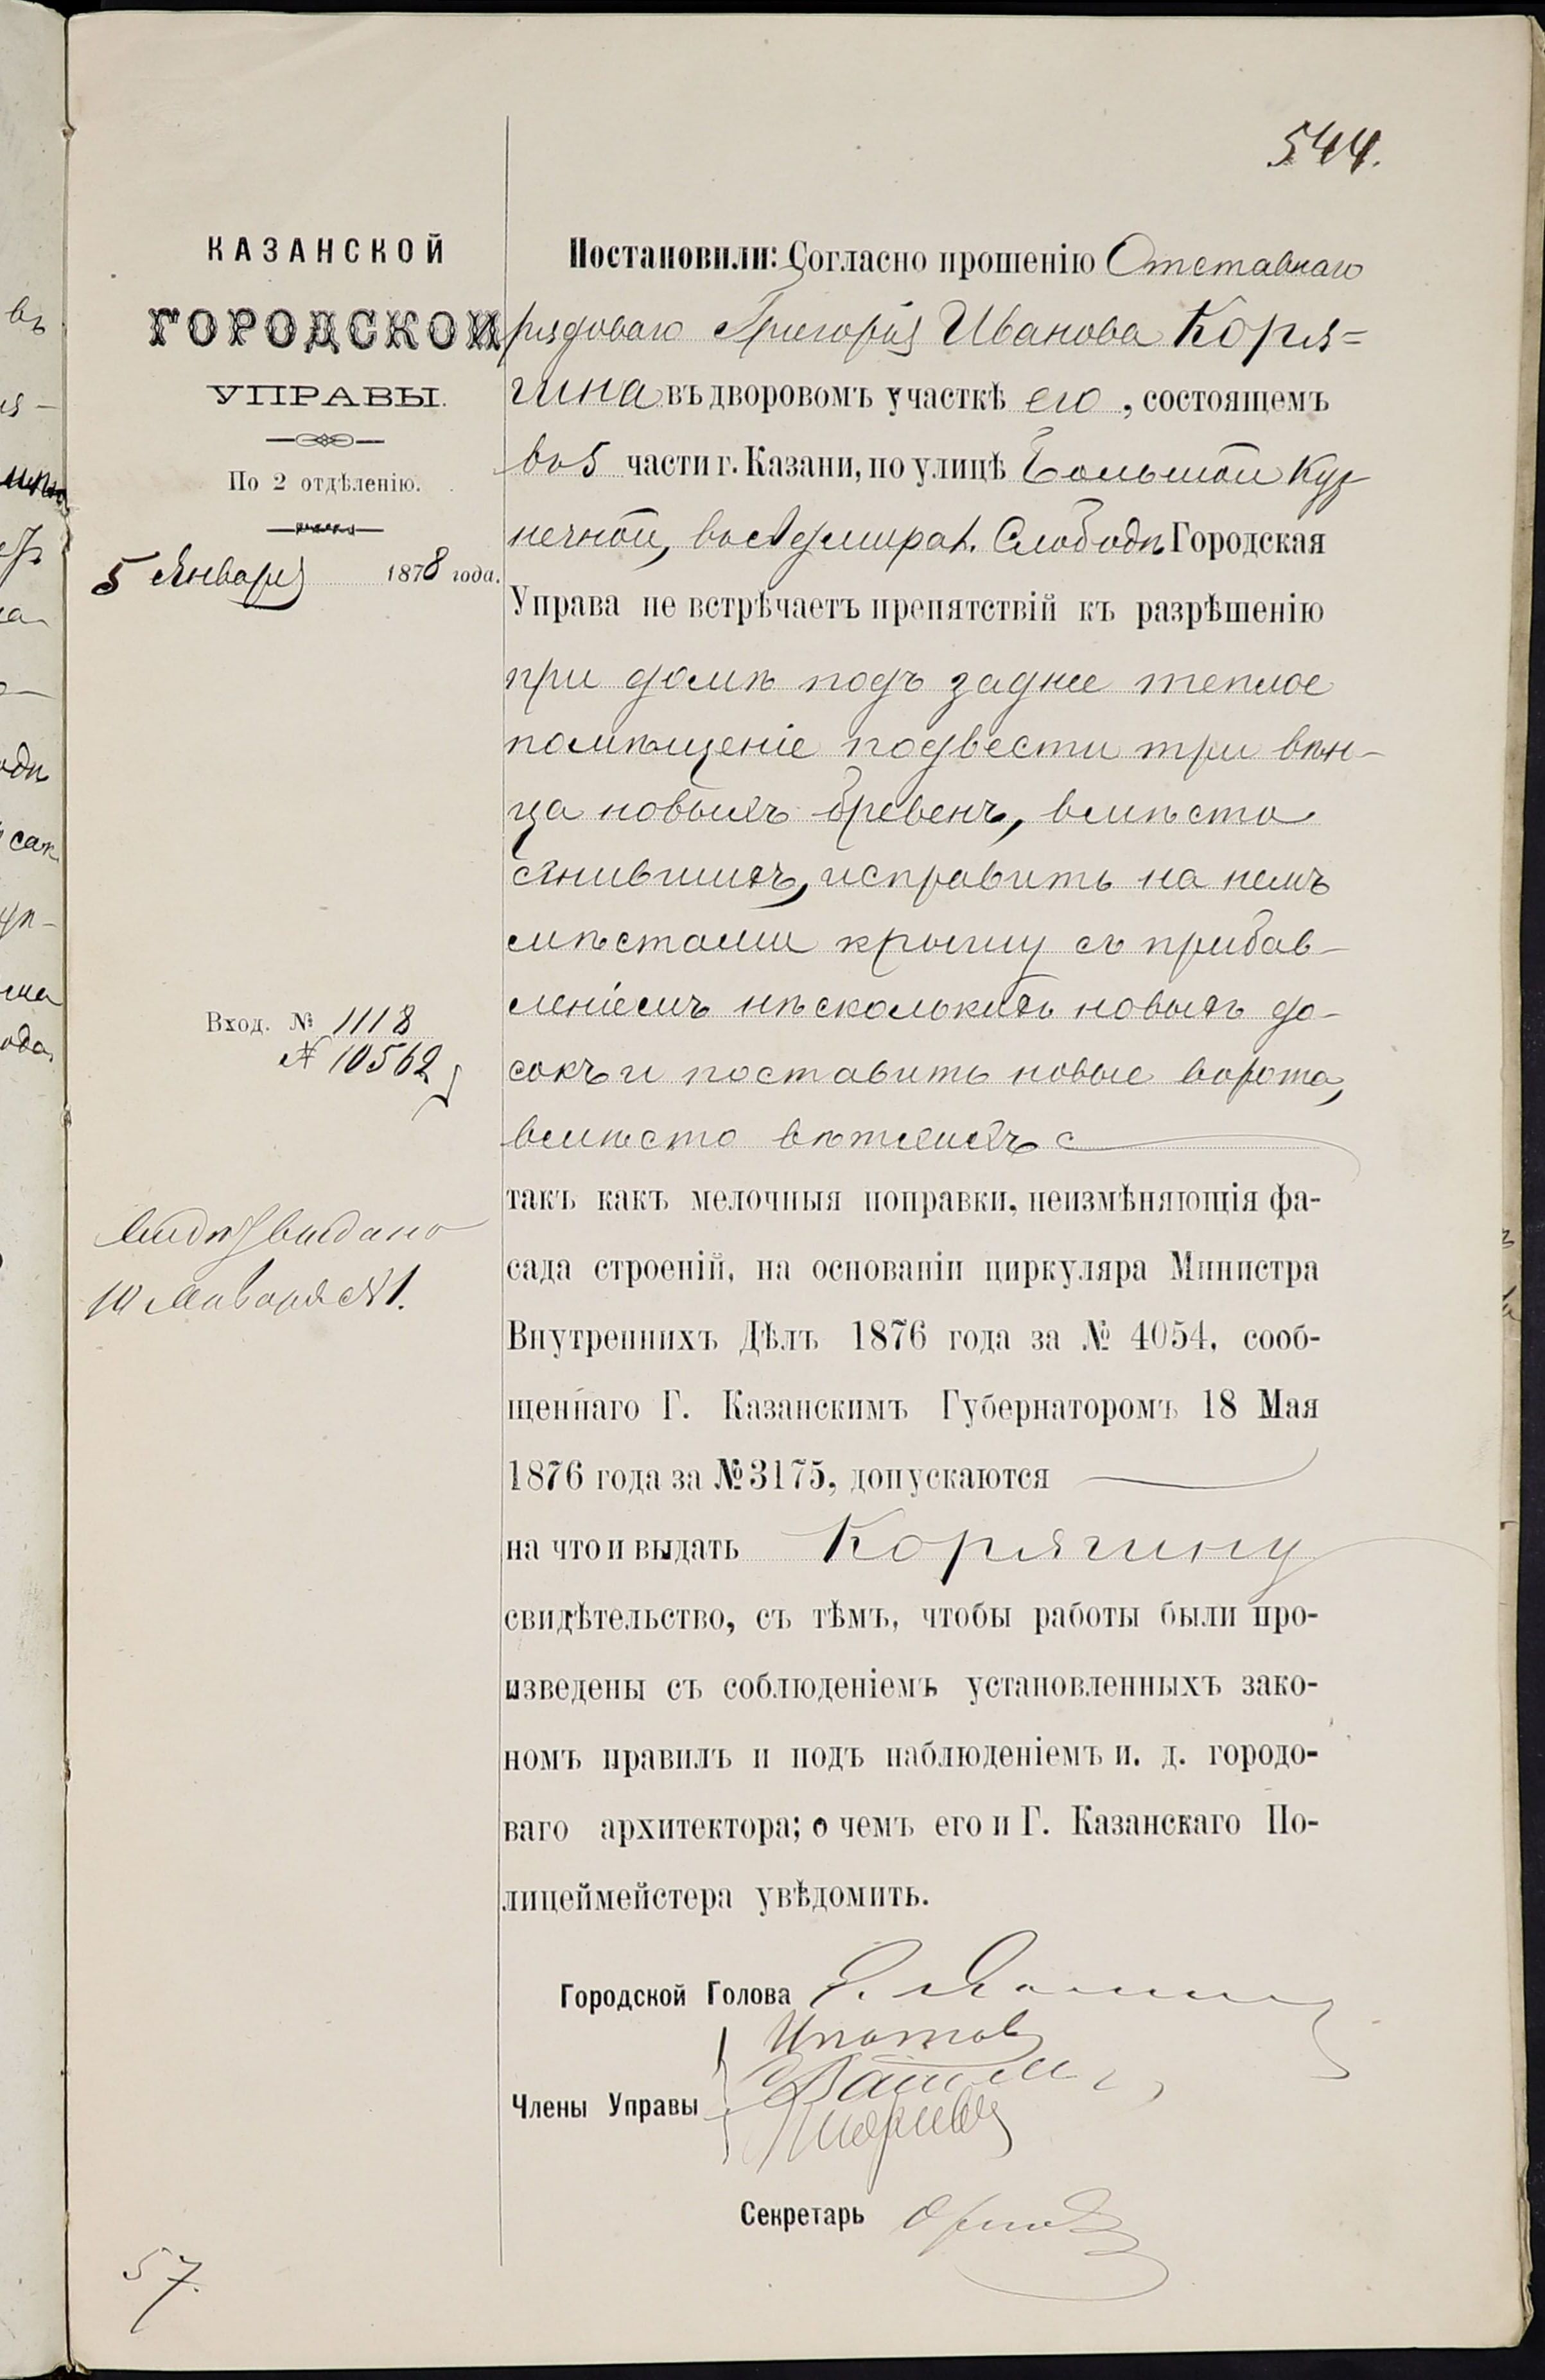 544.
КАЗАНСКОЙ
ГОРОДСКОЙ
УПРАВЫ.
По 2 отдѣленію.
5 Января 1878 года.
Вход. № 1118
№ 10562
выдано
10 Января №1.
57.
Постановили: Согласно прошенію Отставнаго
рядоваго Григорія Иванова Коря=
гина въ дворовомъ участкѣ его, состоящемъ
въ 5 части г. Казани, по улицѣ Большой Куз
нечной, Слободѣ Городская
Управа не встрѣчаетъ препятствій къ разрѣшенію
при домѣ подъ заднее теплое
помѣщеніе подвести три вѣн-
ца новыхъ бревенъ, вмѣсто
сгнившихъ, исправить на немъ
мѣстами крышу съ прибав-
леніемъ нѣсколькихъ новыхъ до-
сокъ и поставить новые ворота,
вмѣсто ветхихъ
такъ какъ мелочныя поправки, неизмѣняющія фа-
сада строеній, на основаніи циркуляра Министра
Внутреннихъ Дѣлъ 1876 года за № 4054, сооб-
щеннаго Г. Казанскимъ Губернаторомъ 18 Мая
1876 года за № 3175, допускаются
на что и выдать Корягину
свидѣтельство, съ тѣмъ, чтобы работы были про-
изведены съ соблюденіемъ установленныхъ зако-
номъ правилъ и подъ наблюденіемъ и. д. городо-
ваго архитектора; о чемъ его и Г. Казанскаго По-
лицеймейстера увѣдомить.
Городской Голова
Ипатов
Члены Управы
Секретарь